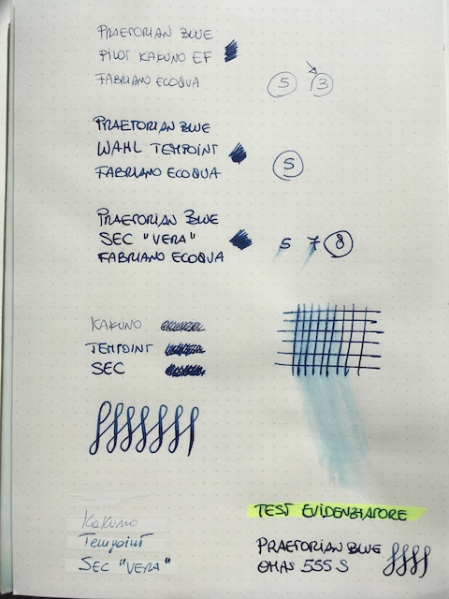 PRAETORIAN BLUE
PILOT KAKUNO EF
FABRIANO ECOQUA
5 3
PRAETORIAN BLUE
WAHL TEMPOINT
FABRIANO ECOQUA
5
PRAETORIAN BLUE
SEC "VERA"
FABRIANO ECOQUA
5 7 8
KAKUNO
TEMPOINT
SEC
Kakuno
Tempoint
SEC "VERA"
TEST EVIDENZIATORE
PRAETORIAN BLUE
OMAS 555 S